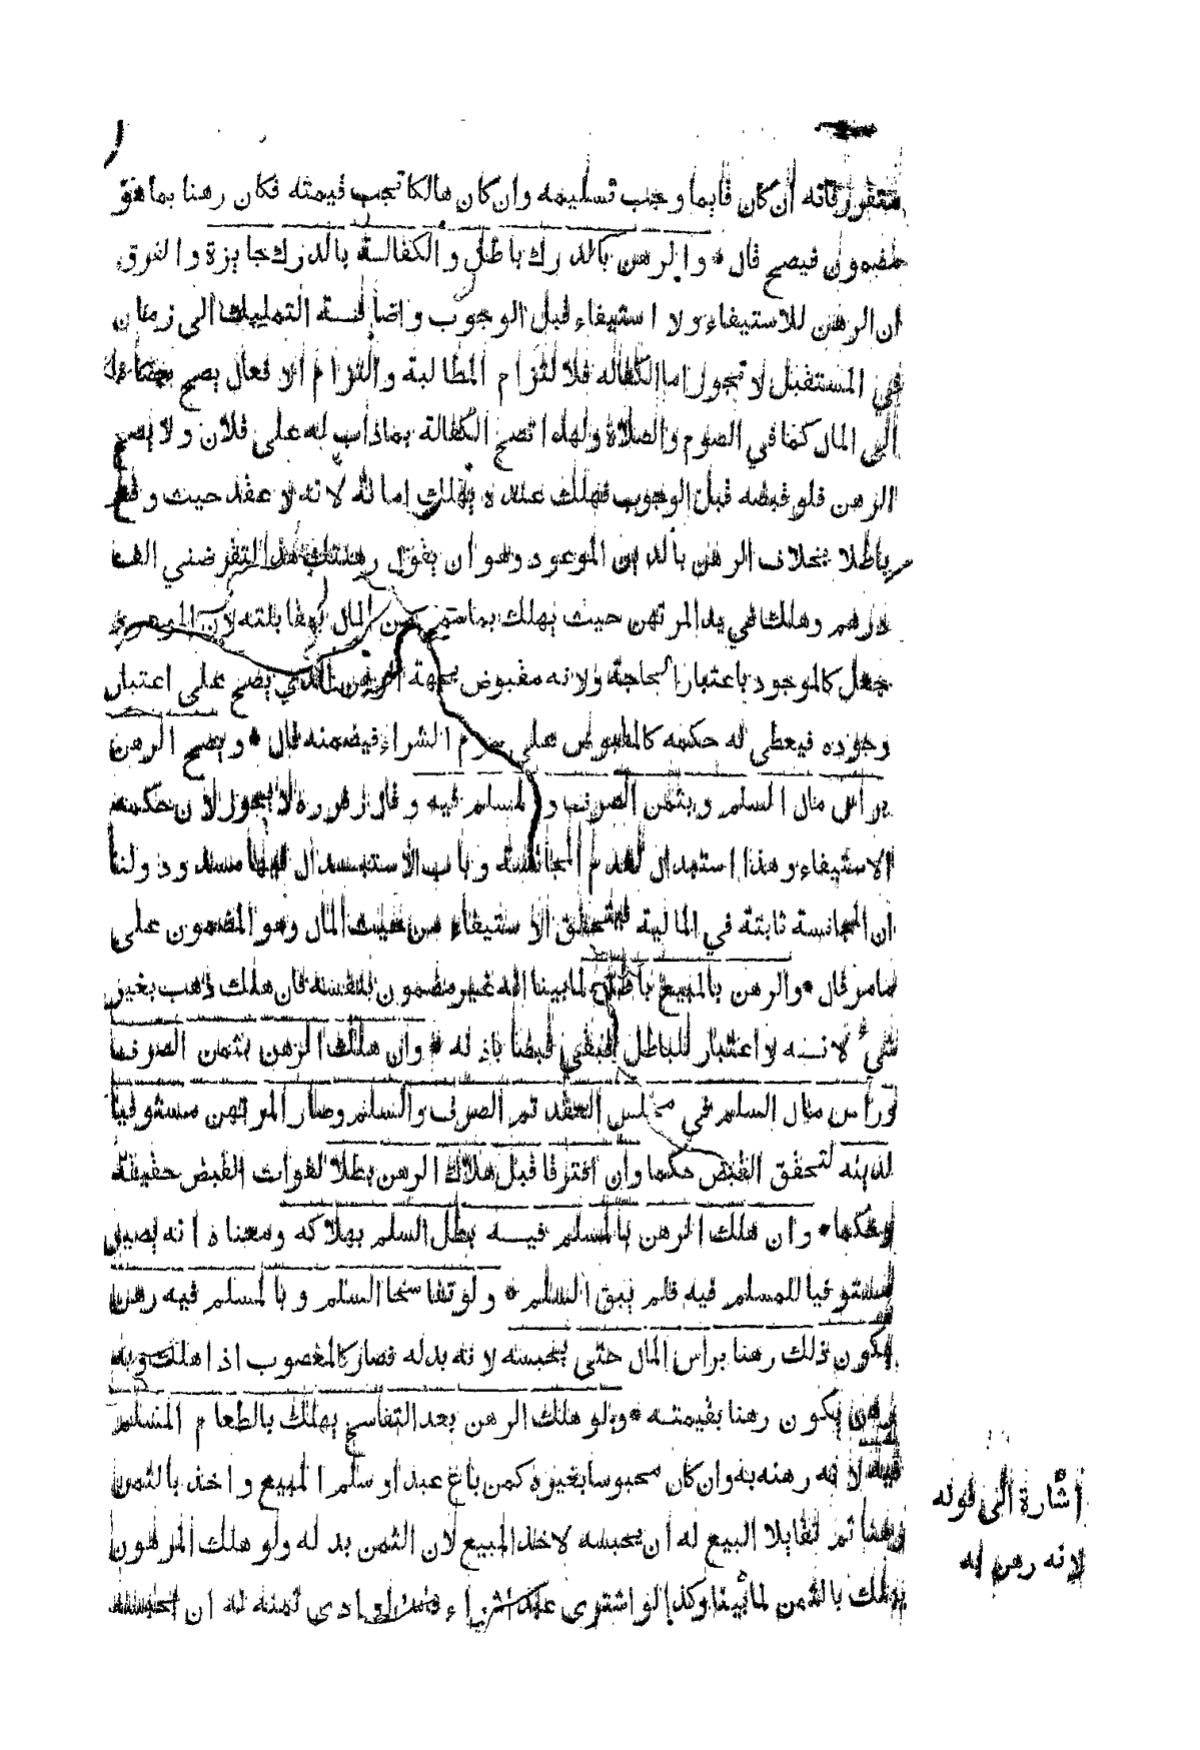 متقرر فانه ان كان قايما وجب تسليمه وان كان هالكا تجب قيمته فكان رهنا بما هو
مضمون فيصح قال * والرهن بالدرك باطل والكفالة بالدرك جايزة والفرق
ان الرهن للاستيفاء ولا استيفاء قبل الوجوب واضافة التمليك الى زمان
في المستقبل لا تجوز اما الكفاله فلالتزام المطالبة والتزام الافعال يصح مضافا
الى المال كما في الصوم والصلاة ولهذا تصح الكفالة بماذاب له على فلان ولا يصح
الرهن فلو قبضه قبل الوجوب فهلك عنده يهلك امانة لانه لا عقد حيث وقع
باطلا بخلاف الرهن بالدين الموعود وهو ان يقول رهنتك هذا لتقرضني الف
درهم وهلك في يد المرتهن حيث يهلك بما سمى من المال بمقابلته لان الموعود
جعل كالموجود باعتبار الحاجة ولانه مقبوض بجهة الرهن الذي يصح على اعتبار
وجوده فيعطى له حكمه كالمقبوض على سوم الشراء فيضمنه قال * ويصح الرهن
براس مال السلم وبثمن الصرف والمسلم فيه وقال زفر ره لا يجوز لان حكمه
الاستيفاء وهذا استبدال لعدم المجانسة وباب الاستبدال فيها مسدود ولنا
ان المجانسة ثابتة في المالية فيتحقق الاستيفاء من حيث المال وهو المضمون على
مامر قال * والرهن بالمبيع باطل لما بينا انه غير مضمون بنفسه فان هلك ذهب بغير
شيء لانه لا اعتبار للباطل فبقي قبضا باذنه * وان هلك الرهن بثمن الصرف
وراس مال السلم في مجلس العقد تم الصرف والسلم وصار المرتهن مستوفيا
لدينه لتحقق القبض حكما وان افترقا قبل هلاك الرهن بطلا لفوات القبض حقيقة
وحكما * وان هلك الرهن بالمسلم فيه بطل السلم بهلاكه ومعناه انه يصير
مستوفيا للمسلم فيه فلم يبق السلم * ولو تفاسخا السلم وبالمسلم فيه رهن
يكون ذلك رهنا براس المال حتى يحبسه لانه بدله فصار كالمغصوب اذا هلك وبه
رهن يكون رهنا بقيمته * ولو هلك الرهن بعد التفاسخ يهلك بالطعام المسلم
فيه لانه رهنه به وان كان محبوسا بغيره كمن باع عبدا وسلم المبيع واخذ بالثمن
رهنا ثم تقايلا البيع له ان يحبسه لاخذ المبيع لان الثمن بدله ولو هلك المرهون
يهلك بالثمن لما بينا وكذا لو اشترى عبدا شراء فاسدا وادى ثمنه له ان يحبسه
اشارة الى قوله
لانه رهن به